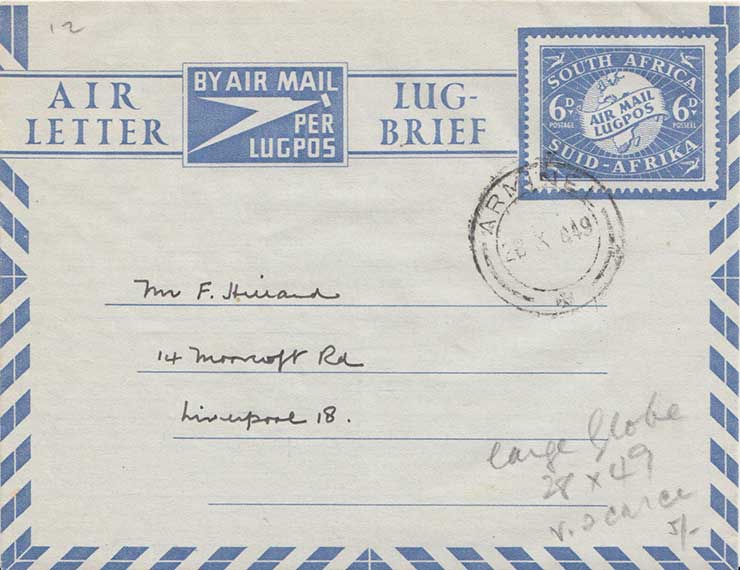 12
AIR LETTER
BY AIR MAIL
PER
LUGPOS
LUG-
BRIEF
SOUTH AFRICA
6D 6D
POSTAGE POSSEEL
AIR MAIL
LUGPOS
SUID-AFRIKA
28 X 49
Mr F.
14 Moorcroft Rd
Liverpool 18.
large Globe
28 X 49
v. scarce
5/-